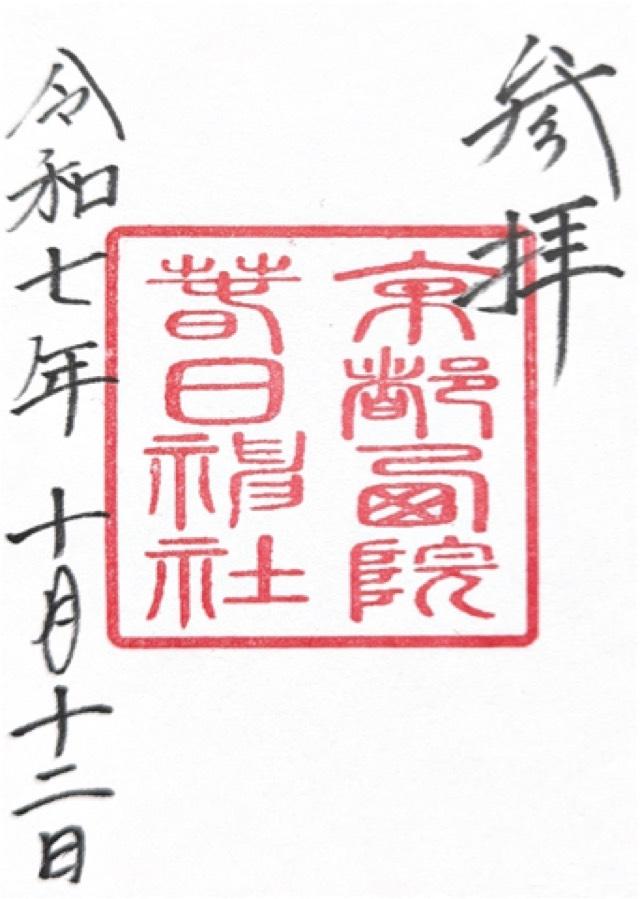 参拝
京都西院
春日神社
令和七年 十月十二日